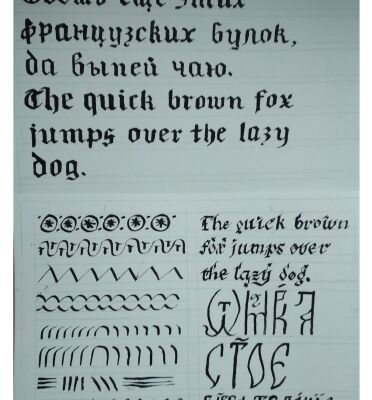 Съешь еще этих
французских булок,
да выпей чаю.
The quick brown fox
jumps over the lazy
dog.
The quick brown
fox jumps over
the lazy dog.